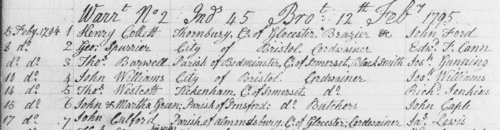 Warrt No 2 Ind 45 Brot 12th Feby 1795
5 Feby 1794 1 Henry Collett Thornbury, Co of Glocester Brazier &c John Ford
8 do 2 Geo Spurrier City of Bristol Cordwainer Edwd F. Cann
do do 3 Thos Barwell Parish of Bedminster, C. of Somerset, Black Smith Jos Gunning
10 do 4 John Williams City of Bristol Cordwainer Jos Williams
14 do 5 Thos Westcott Tickenham, C. of Somerset do Richd Jenkins
16 do 6 John & Martha Green; Parish of do Butchers John Caple
17 do 7 John Parish of almondsbury C. of Glocester; Cordwainer Jas Lewis